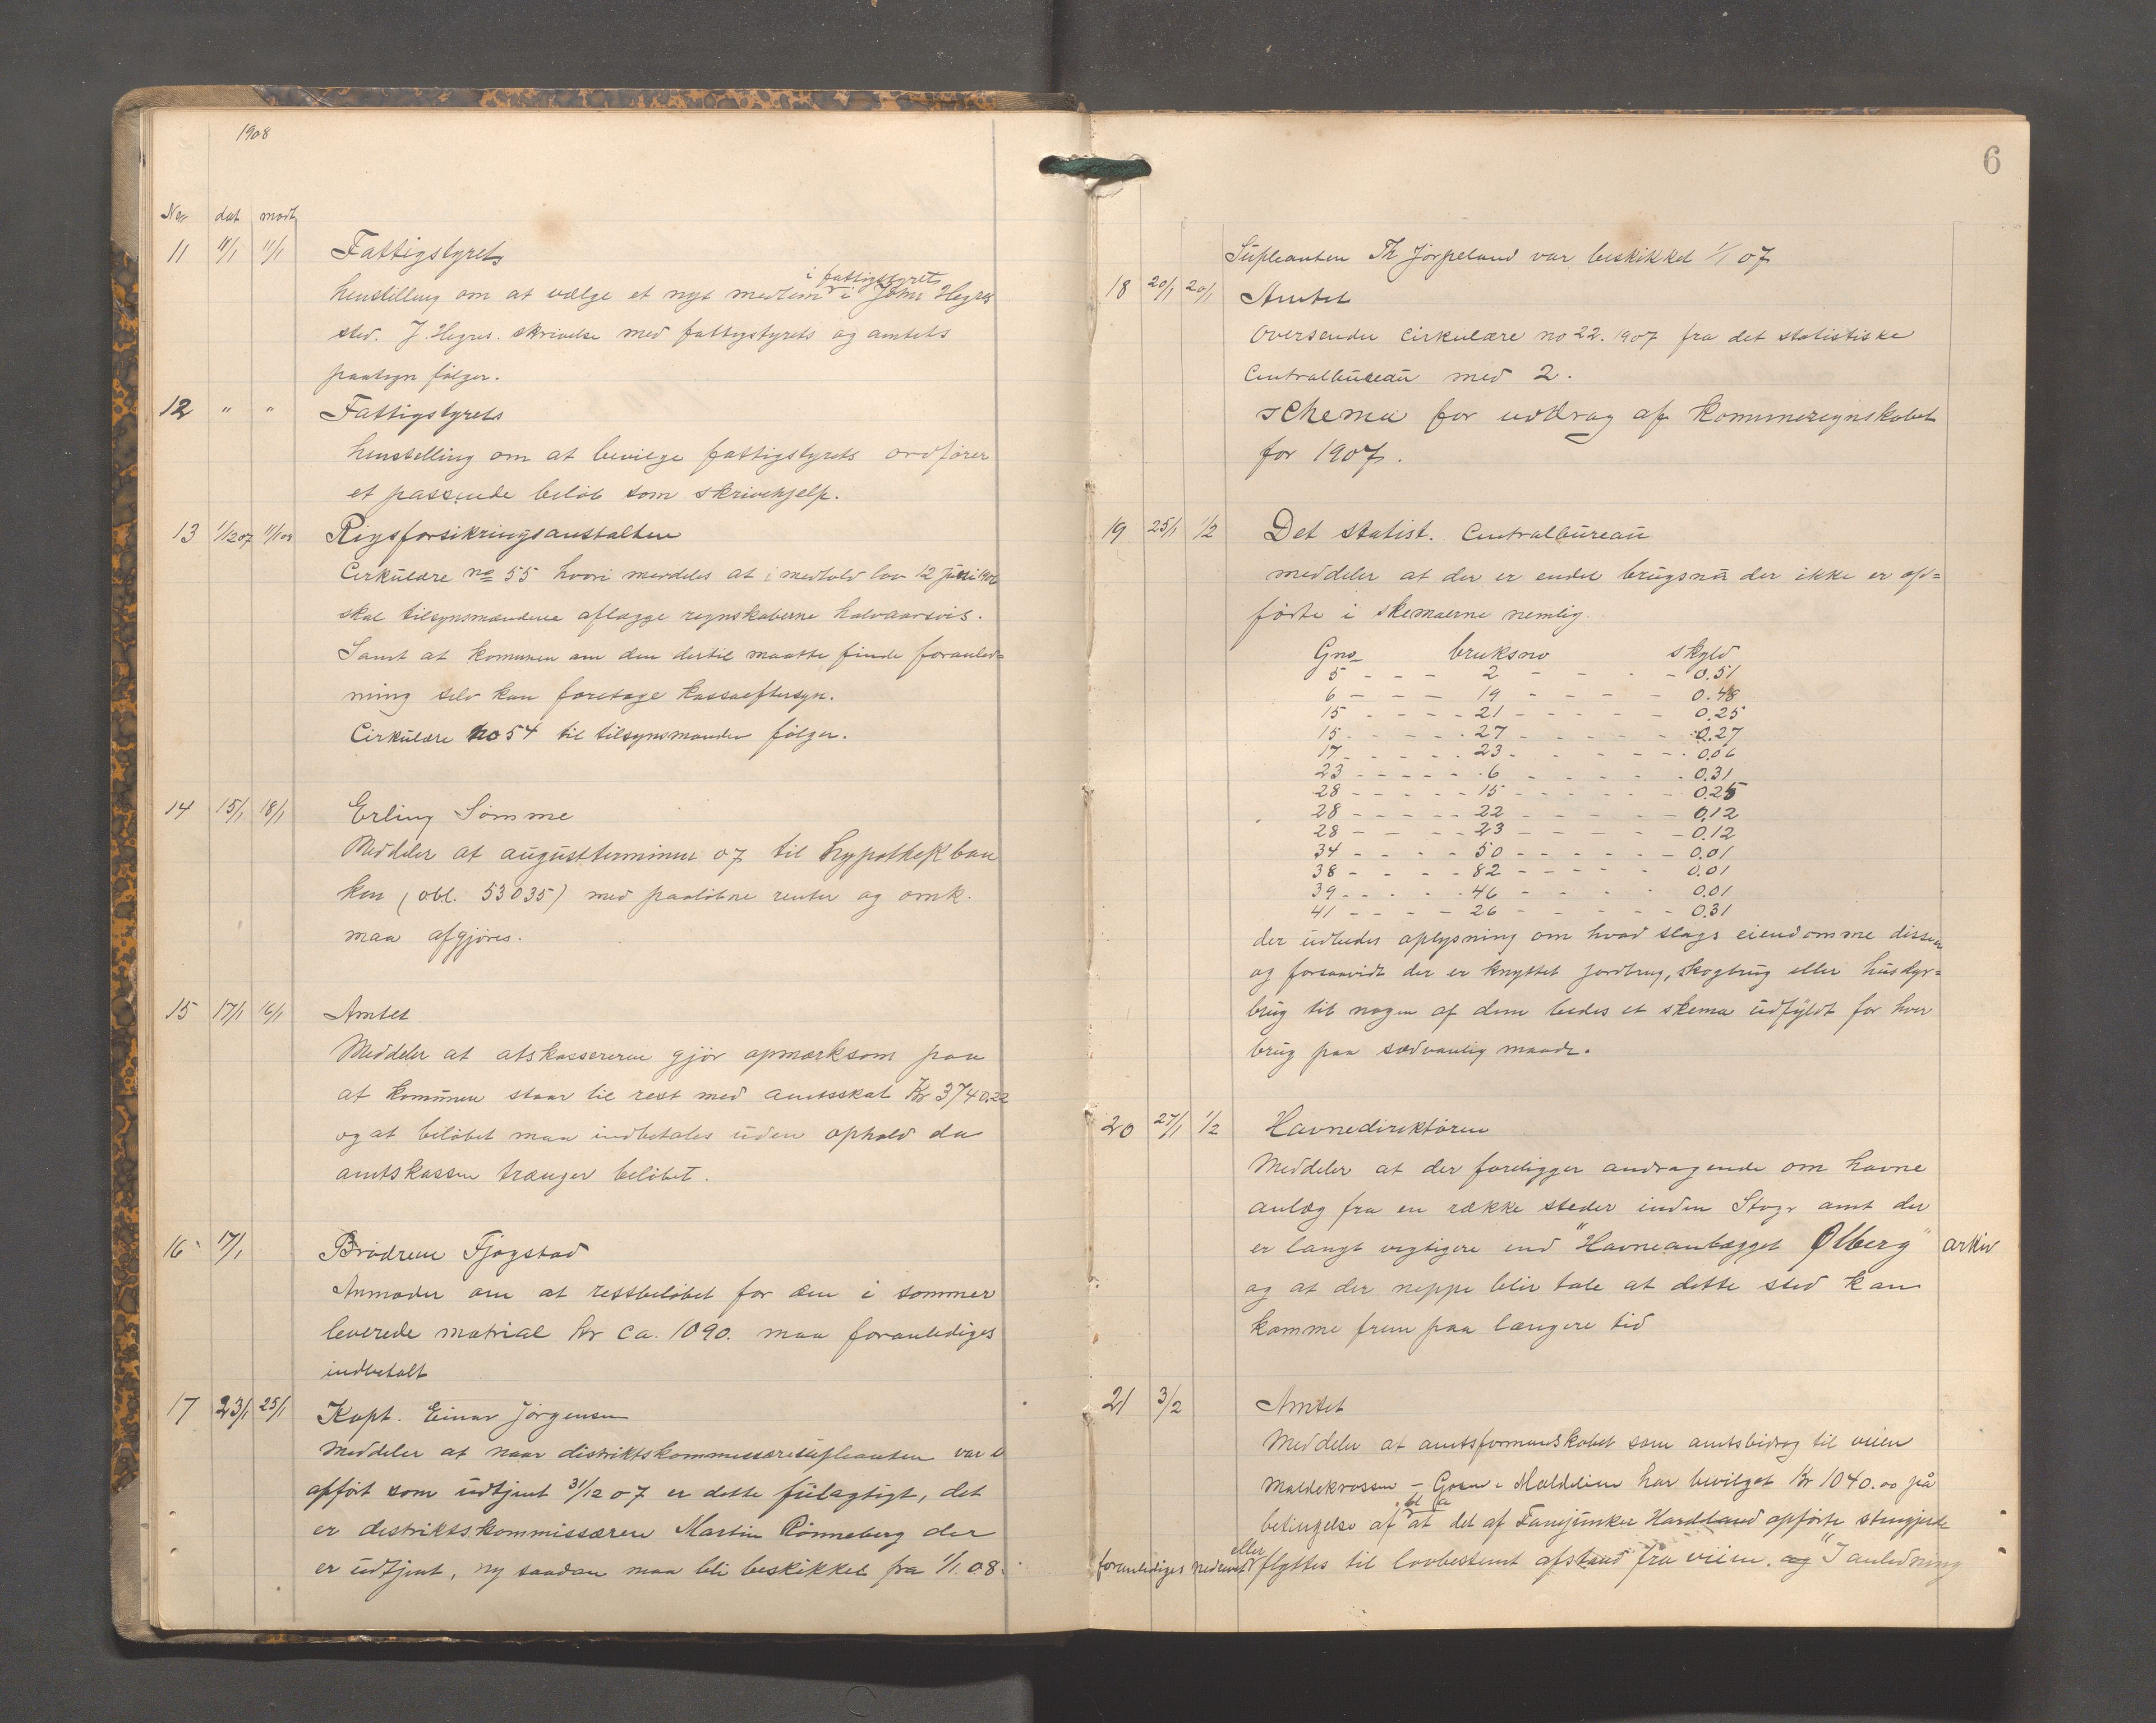 1908
No dat modt
11 11/1 11/1 Fattigstyrets
henstilling om at vælge et nyt medlem i fattigstyret i John Hegres
sted. J. Hegres. skrivelse med fattigstyrets og amtets
paategn følger.
12 " " Fattigstyrets
henstilling om at bevilge fattigstyrets ordfører
et passende beløb som skrivehjelp.
13 1/12 07 11/1 08 Rigsforsikringsanstalten
Cirkulære no 55 hvori meddeles at i medhold lov 12 juni 1906
skal tilsynsmændene aflægge regnskaberne halvaarsvis.
Samt at komunen om den dertil maatte finde foranled=
ning selv kan foretage kassaeftersyn.
Cirkulære no 54 til tilsynsmanden følger.
14 15/1 18/1 Erling Sømme
Meddeler at augustterminen 07 til hypothekban
ken (obl. 53035) med paaløbne renter og omk.
maa afgjøres.
15 17/1 16/1 Amtet
Meddeler at atskassereren gjør opmærksom paa
at komunen staar til rest med amtsskat Kr 3740.22
og at beløbet maa indbetales uden ophold da
amtskassen trænger beløbet.
16 17/1 Brødrene Fjogstad
Anmoder om at restbeløbet for den i sommer
leverede matrial kr ca. 1090. maa foranlediges
indbetalt
17 23/1 25/1 Kapt. Einar Jørgensen
meddeler at naar distriktskommissæresupleanten var
opført som udtjent 31/12 07 er dette feilagtigt, det
er distriktskommissæren Martin Rønneberg der
er udtjent, ny saadan maa bli beskikket fra 1/1. 08.
6
Supleanten Th Jørpeland var beskikket 1/1 07
18 20/1 20/1 Amtet
Oversender cirkulære no 22. 1907 fra det statistiske
Centralbureau med 2.
schema for uddrag af komuneregnskabet
for 1907.
19 25/1 1/2 Det statist. Centralbureau
meddeler at der er endel brugsnr der ikke er op=
førte i skemaerne nemlig.
Gno bruksno skyld
5 - - - 2 - - - 0.51
6 - - - 19 - - - 0.48
15 - - - 21 - - - 0.25
15 - - - 27 - - - 0.27
17 - - - 23 - - - 0.06
23 - - - 6 - - - 0.31
28 - - - 15 - - - 0.25
28 - - - 22 - - - 0.12
28 - - - 23 - - - 0.12
34 - - - 50 - - - 0.01
38 - - - 82 - - - 0.01
39 - - - 46 - - - 0.01
41 - - - 26 - - - 0.31
der udbedes oplysning om hvad slags eiendomme disse er
og forsaavidt der er knyttet jordbrug, skogbrug eller husdyr=
brug til nogen af dem bedes et skema udfyldt for hver
brug paa sædvanlig maade.
20 27/1 1/2 Havnedirektøren
Meddeler at der foreligger andragende om havne
anlæg fra en række steder inden Stvgr amt der
er langt vigtigere end "Havneanlægget Ølberg" arkiv
og at der neppe blir tale at dette sted kan
komme frem paa længere tid
21 3/2 Amtet
Meddeler at amtsformandskabet som amtsbidrag til veien
Maldekrossen - - Maldelien har bevilget Kr 1040.00 på
betingelse af bl a at det af Fanejunker Hardeland opførte stengjerde
foranlediges nedrevet eller flyttes til lovbestemt afstand fra veien. og "I anledning